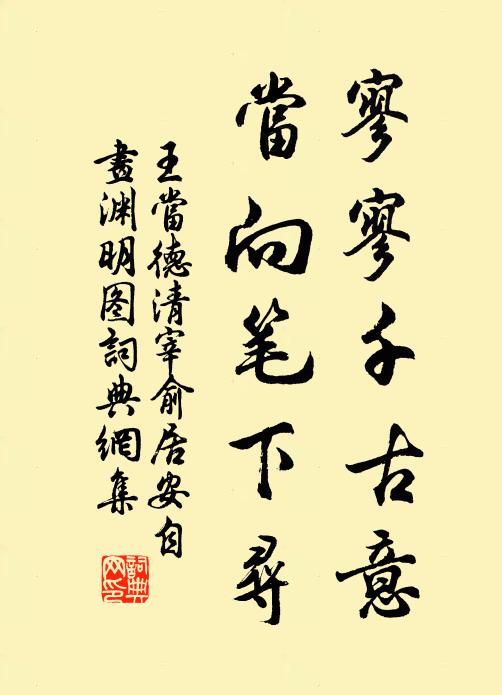 寥寥千古意
當向笔下尋
王當德清宰俞居安自
畫渊明图詞典網集
詞典
网印